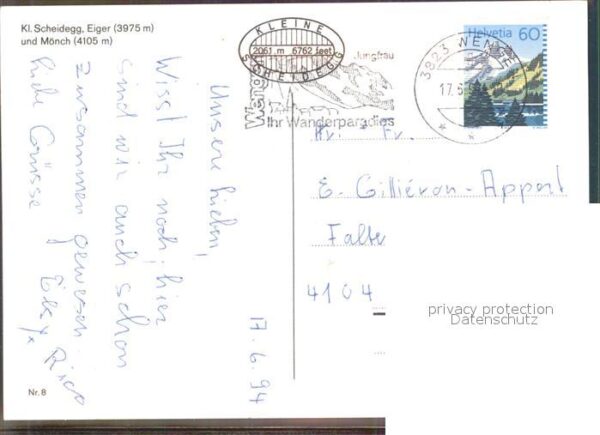 Kl. Scheidegg, Eiger (3975 m)
und Mönch (4105 m)
KLEINE
2061 m 6762 feet
SCHEIDEGG
Jungfrau
Weng
Ihr Wanderparadies
3823 WENGE
17.6.9
Helvetia 60
Unsere Lieben,
Wisst Ihr noch; hier
sind wir auch schon
zusammen gewesen.
Liebe Grüsse
Rico
17.6.94
Hr. + Fr.
E. Gilliéron-Appert
Falte
4104
privacy protection
Datenschutz
Nr. 8